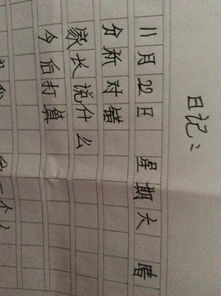 日记：
11月22日 星期六 晴
分析对错
家长说什么
今后打算